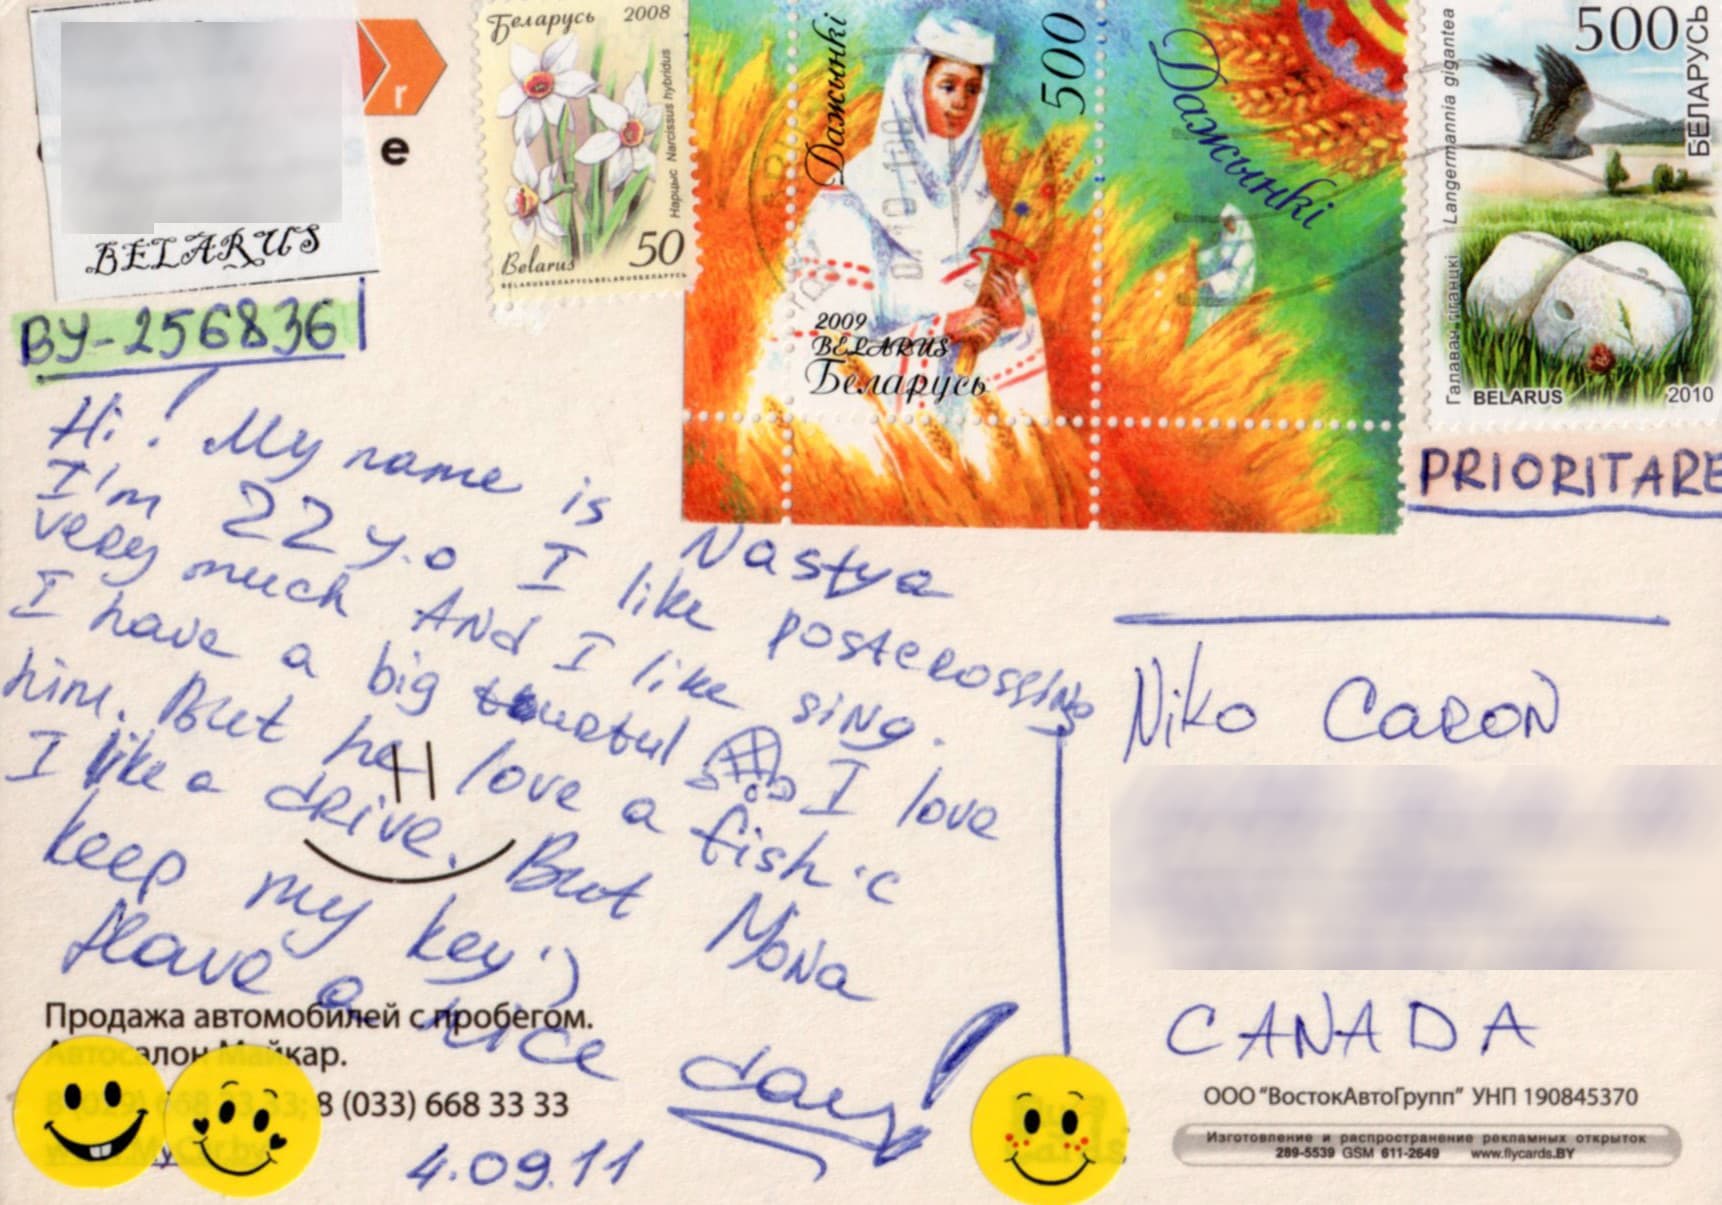 r
e
BELARUS
BY-256836
Беларусь 2008
Нарцыс Narcissus hybridus
Belarus 50
BELARUSБЕЛАРУСЬBELARUSБЕЛАРУСЬ
Дажынкі
500
2009
BELARUS
Беларусь
Дажынкі
500
БЕЛАРУСЬ
Langermannia gigantea
Галавач гіганцкі
BELARUS 2010
PRIORITARE
Hi! My name is Nastya
I'm 22 y.o I like postcrossing
very much And I like sing.
I have a big I love
him. But he love a fish :c
I like a drive. But Mona
keep my key :)
Have a nice day!
4.09.11
Niko Caron
CANADA
Продажа автомобилей с пробегом.
Автосалон Майкар.
8 (033) 668 33 33
www.MyCar.by
ООО "ВостокАвтоГрупп" УНП 190845370
Изготовление и распространение рекламных открыток
289-5539 GSM 611-2649 www.flycards.BY